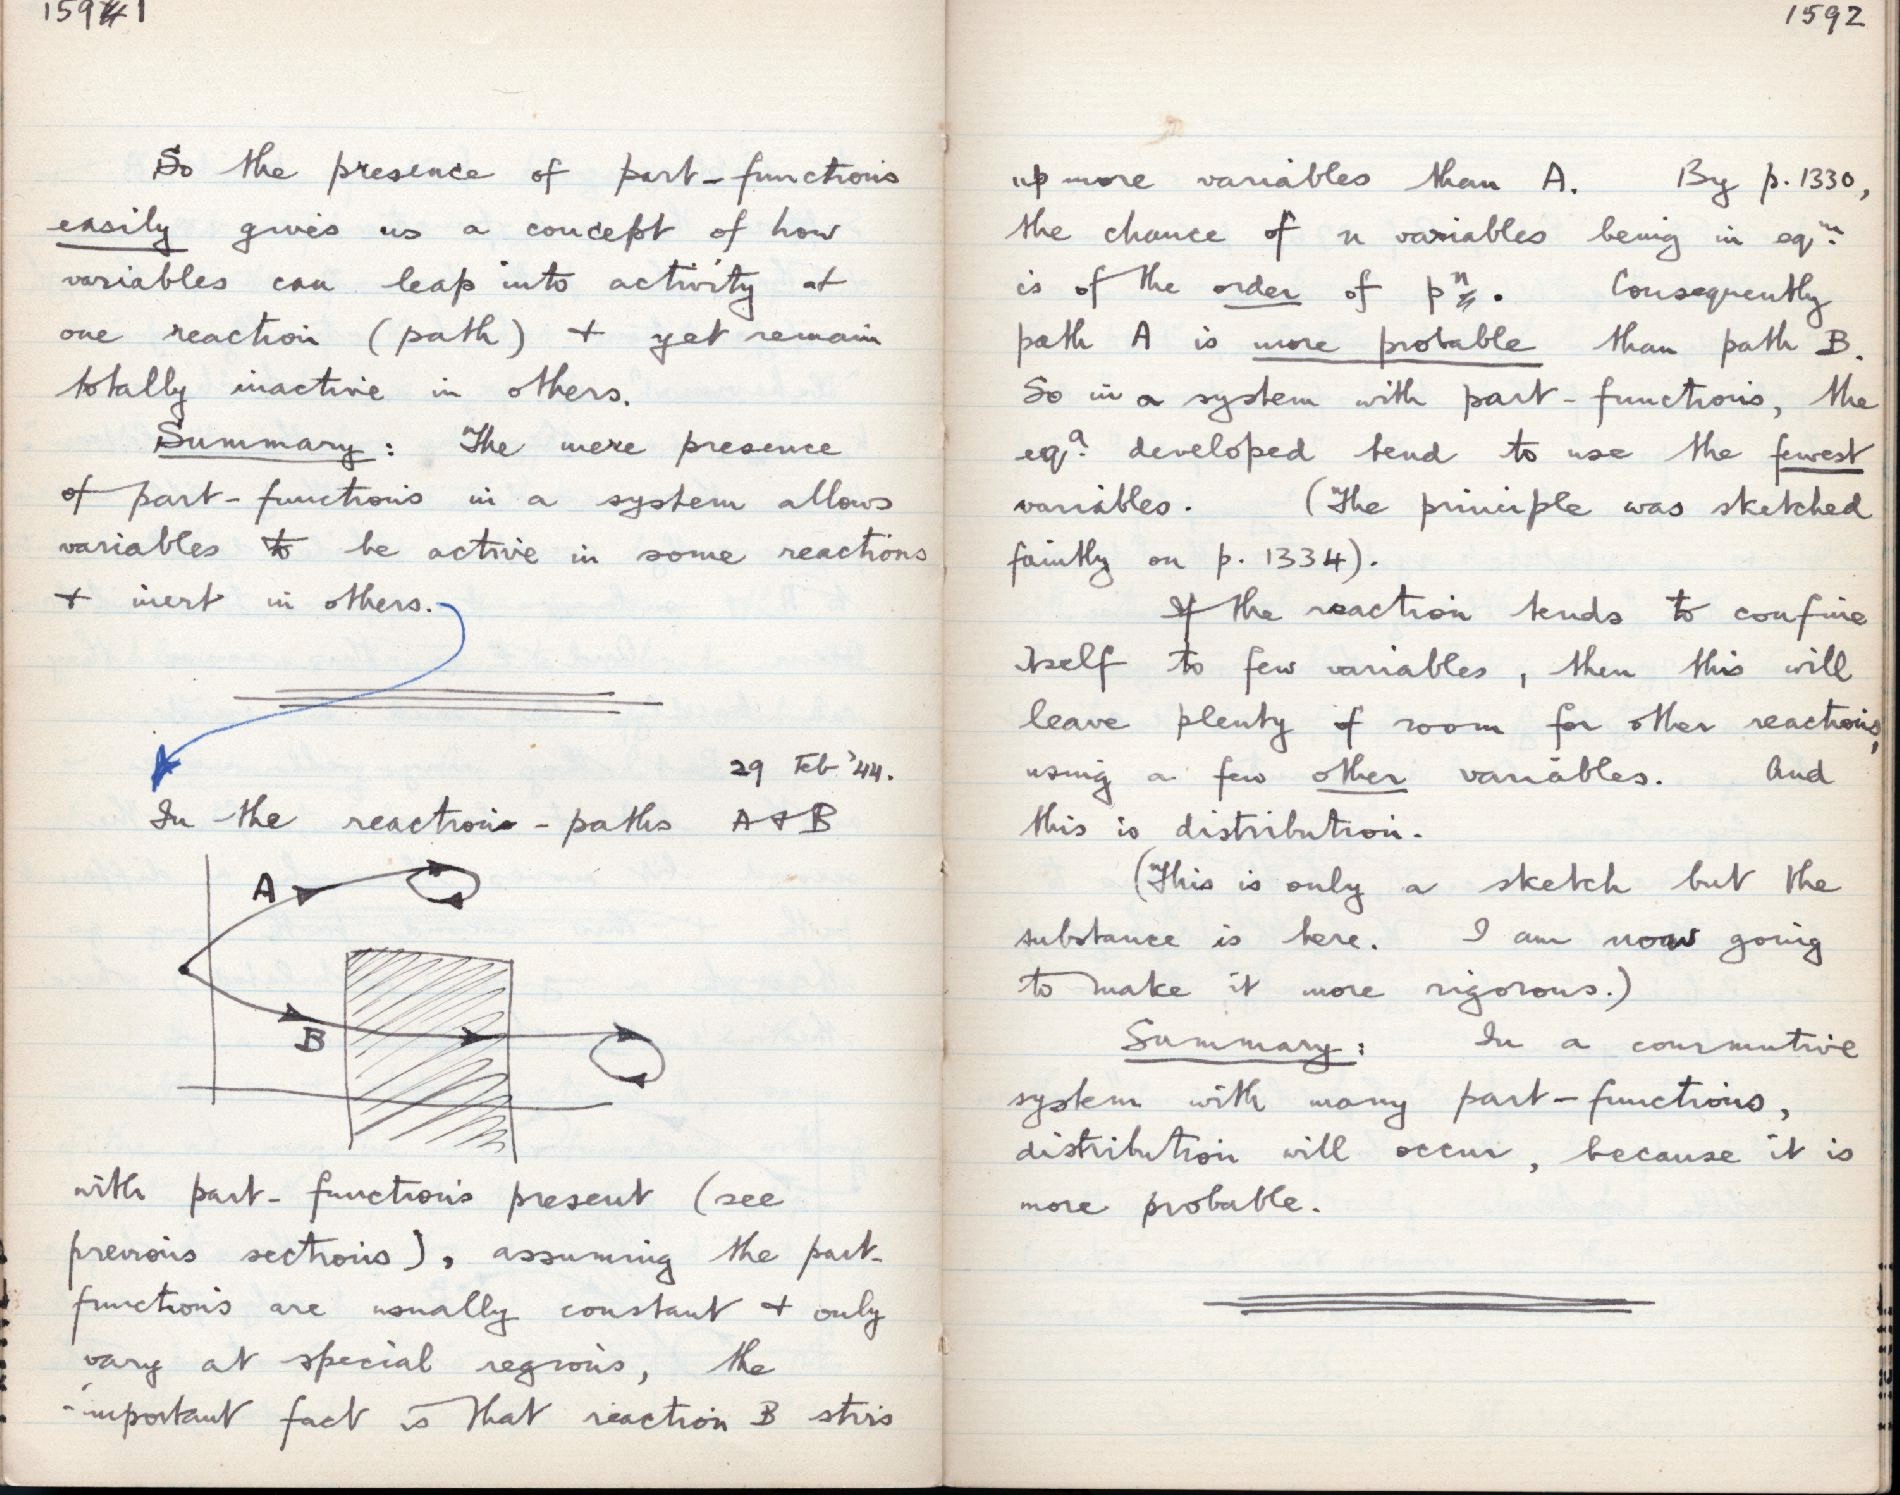 1591
So the presence of part-functions
easily gives us a concept of how
variables can leap into activity at
one reaction (path) & yet remain
totally inactive in others.
Summary: The mere presence
of part-functions in a system allows
variables to be active in some reactions
& inert in others.
29 Feb '44.
In the reaction-paths A & B
A
B
with part-functions present (see
previous sections), assuming the part-
functions are usually constant & only
vary at special regions, the
important fact is that reaction B stirs
1592
up more variables than A. By p. 1330,
the chance of n variables being in eqm.
is of the order of pⁿ. Consequently
path A is more probable than path B.
So in a system with part-functions, the
eqa. developed tend to use the fewest
variables. (The principle was sketched
faintly on p. 1334).
If the reaction tends to confine
itself to few variables, then this will
leave plenty of room for other reactions,
using a few other variables. And
this is distribution.
(This is only a sketch but the
substance is here. I am now going
to make it more rigorous.)
Summary: In a commutive
system with many part-functions,
distribution will occur, because it is
more probable.